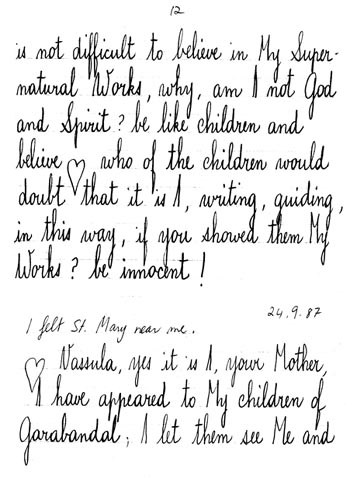 12
is not difficult to believe in My Super-
natural Works, why, am I not God
and Spirit? be like children and
believe ♡ who of the children would
doubt that it is I, writing, guiding,
in this way, if you showed them My
Works? be innocent!
24.9.87
I felt St. Mary near me.
♡ Vassula, yes it is I, your Mother,
I have appeared to My children of
Garabandal; I let them see Me and